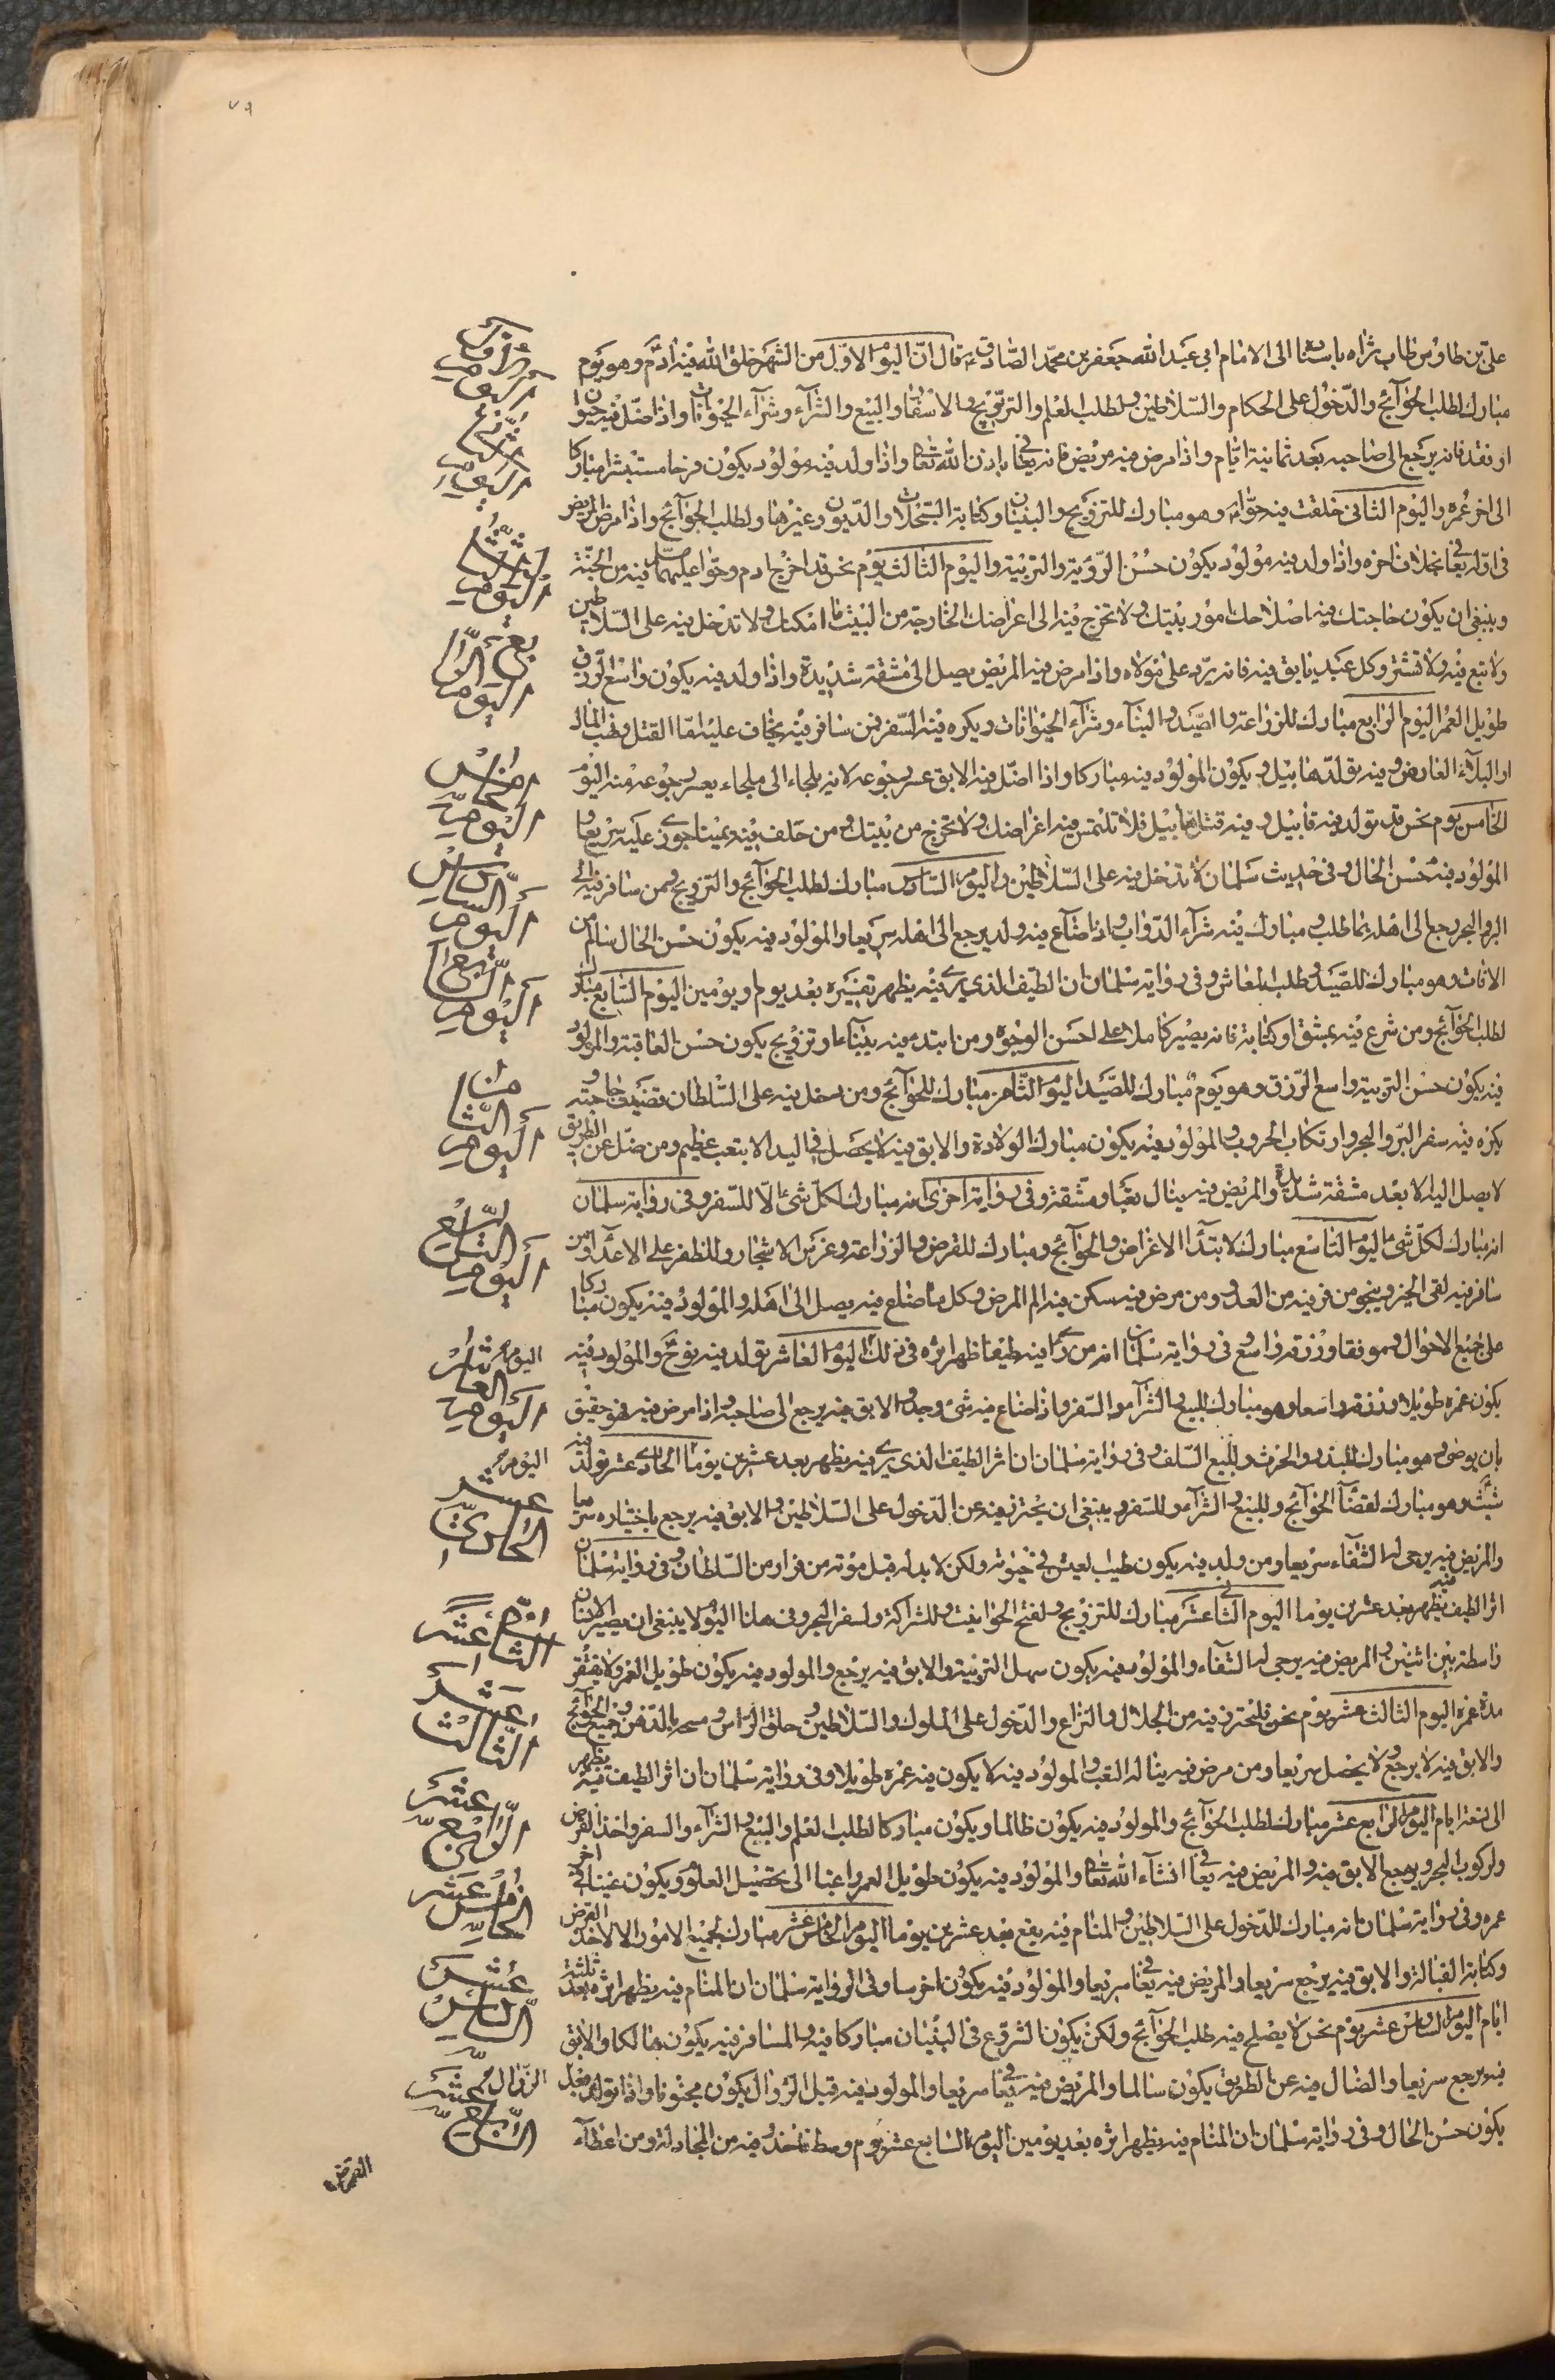 ٧٩
علي بن طاوس طاب ثراه باسناده الى الامام ابي عبد الله جعفر بن محمد الصادق ع قال ان اليوم الاول من الشهر خلق الله فيه ادم وهو يوم
مبارك لطلب الحوآئج والدخول على الحكام والسلاطين ولطلب العلم والتزويج والاسفار والبيع والشرآء وشرآء الحيوانات واذا ضل فيه حيوان
او نفد فانه يرجع الى صاحبه بعد ثمانية ايام واذا مرض فيه مريض فانه يعافى باذن الله تعالى واذا ولد فيه مولود يكون فرحا مستبشرا مباركا
الى اخر عمره واليوم الثاني خلقت فيه حوا وهو مبارك للتزويج والبنيان وكتابة السجلات والديون وغيرها ولطلب الحوآئج واذا مرض المريض
في اوله يعافى بخلاف اخره واذا ولد فيه مولود يكون حسن الرؤية والتربية واليوم الثالث يوم نحس قد اخرج ادم وحوا عليهما السلام فيه من الجنة
وينبغي ان يكون حاجتك فيه اصلاحك امور بيتك ولا تخرج فيه الى اغراضك الخارجة من البيت ما امكنك ولا تدخل فيه على السلاطين
ولا تبع فيه ولا تشتر وكل عبد يابق فيه فانه يرد على مولاه واذا مرض فيه المريض يصل الى مشقة شديدة واذا ولد فيه يكون واسع الرزق
طويل العمر اليوم الرابع مبارك للزراعة والصيد والبنآء وشرآء الحيوانات ويكره فيه السفر فمن سافر فيه يخاف عليه اما القتل ونهب المال
او البلآء العارض وفيه تولد هابيل ويكون المولود فيه مباركا واذا اضل فيه الابق عسر رجوعه لانه يلجاء الى ملجاء يعسر رجوعه منه اليوم
الخامس يوم نحس قد تولد فيه قابيل وفيه قتل هابيل فلا تلتمس فيه اغراضك ولا تخرج من بيتك ومن حلف فيه يمينا جوزي عليه سريعا و
المولود فيه حسن الحال وفي حديث سلمان لا تدخل فيه على السلاطين واليوم السادس مبارك لطلب الحوآئج والتزويج ومن سافر فيه الى
البر والبحر رجع الى اهله بما طلب ومبارك فيه شرآء الدواب واذا ضاع فيه ولد يرجع الى اهله سريعا والمولود فيه يكون حسن الحال سالم من
الافات وهو مبارك للصيد وطلب المعاش وفي رواية سلمان ان الطيف الذي يرى فيه يظهر تفسيره بعد يوم او يومين اليوم السابع مبارك
لطلب الحوآئج ومن شرع فيه بمشق او كتابة فانه يصير كاملا على احسن الوجوه ومن ابتدء فيه ببنآء او تزويج يكون حسن العاقبة والمولود
فيه يكون حسن التربية واسع الرزق وهو يوم مبارك للصيد اليوم الثامن مبارك للحوآئج ومن دخل فيه على السلطان قضيت حاجته و
يكره فيه سفر البر والبحر وارتكاب الحروب والمولود فيه يكون مبارك الولادة والابق فيه لا يحصل في اليد الا بتعب عظيم ومن ضل عن الطريق
لا يصل اليه الا بعد مشقة شديدة والمريض فيه ينال تعبا ومشقة وفي رواية اخرى انه مبارك لكل شئ الا للسفر وفي رواية سلمان
انه مبارك لكل شئ اليوم التاسع مبارك لابتدآ الاغراض والحوآئج ومبارك للقرض والزراعة وغرس الاشجار وللظفر على الاعدآء ومن
سافر فيه لقى الخير وينجو من فر فيه من العدو ومن مرض فيه سكن فيه الم المرض وكل ما ضاع فيه يصل الى اهله والمولود فيه يكون مباركا
على جميع الاحوال وموفقا ورزقه واسع في رواية سلمان انه من رأى فيه طيفا ظهر اثره في ذلك اليوم العاشر تولد فيه نوح والمولود فيه
يكون عمره طويلا ورزقه واسعا وهو مبارك للبيع والشرآء والسفر واذا ضاع فيه شئ وجد والابق فيه يرجع الى صاحبه واذا مرض فيه فهو حقيق
بان يوصى وهو مبارك للبذر والحرث وللبيع السلف وفي رواية سلمان ان اثر الطيف الذي يرى فيه يظهر بعد عشرين يوما الحادي عشر تولد فيه
شيث وهو مبارك لقضآء الحوآئج وللبيع والشرآء وللسفر وينبغي ان يحترز فيه عن الدخول على السلاطين والابق فيه يرجع باختياره سريعا
والمريض فيه يرجى له الشفاء سريعا ومن ولد فيه يكون طيب العيش في حيوته ولكن لا بد له قبل موته من فرار من السلطان وفي رواية سلمان
اثر الطيف فيه يظهر بعد عشرين يوما اليوم الثاني عشر مبارك للتزويج ولفتح الحوانيت وللشراكة ولسفر البحر وفي هذا اليوم لا ينبغي ان يصير الانسان
واسطة بين اثنين والمريض فيه يرجى له الشفآء والمولود فيه يكون سهل التربية والابق فيه يرجع والمولود فيه يكون طويل العمر ولا يفتقر
مدة عمره اليوم الثالث عشر يوم نحس فليحترز فيه من الجدال والنزاع والدخول على الملوك والسلاطين وحلق الراس ومسحه بالدهن وجميع الحوآئج
والابق فيه لا يرجع ولا يحصل سريعا ومن مرض فيه يناله التعب والمولود فيه لا يكون فيه عمره طويلا وفي رواية سلمان ان اثر الطيف فيه يظهر
الى تسعة ايام اليوم الرابع عشر مبارك لطلب الحوآئج والمولود فيه يكون ظالما ويكون مباركا لطلب العلم والبيع والشرآء والسفر واخذ القرض
ولركوب البحر ويرجع الابق فيه والمريض فيه يعافى انشآء الله تعالى والمولود فيه يكون طويل العمر راغبا الى تحصيل العلم ويكون غنيا في اخر
عمره وفي رواية سلمان انه مبارك للدخول على السلاطين والمنام فيه يقع بعد عشرين يوما اليوم الخامس عشر مبارك لجميع الامور الا لاخذ القرض
وكتابة القبالة والابق فيه يرجع سريعا والمريض فيه يعافى سريعا والمولود فيه يكون اخرسا وفي الرواية سلمان ان المنام فيه يظهر اثره بعد ثلثة
ايام اليوم السادس عشر يوم نحس لا يصلح فيه طلب الحوآئج ولكن يكون الشروع في البنيان مباركا فيه والمسافر فيه يكون هالكا والابق
فيه يرجع سريعا والضال فيه عن الطريق يكون سالما والمريض فيه يعافى سريعا والمولود فيه قبل الزوال يكون مجنونا واذا تولد بعد الزوال
يكون حسن الحال وفي رواية سلمان ان المنام فيه يظهر اثره بعد يومين اليوم السابع عشر يوم وسط فاحذر فيه من المجادلة ومن اعطآء
القرض
اليوم الاول
اليوم الثاني
اليوم الثالث
اليوم الرابع
اليوم الخامس
اليوم السادس
اليوم السابع
اليوم الثامن
اليوم التاسع
اليوم العاشر
اليوم الحادي عشر
الثاني عشر
الثالث عشر
الرابع عشر
الخامس عشر
السادس عشر
السابع عشر